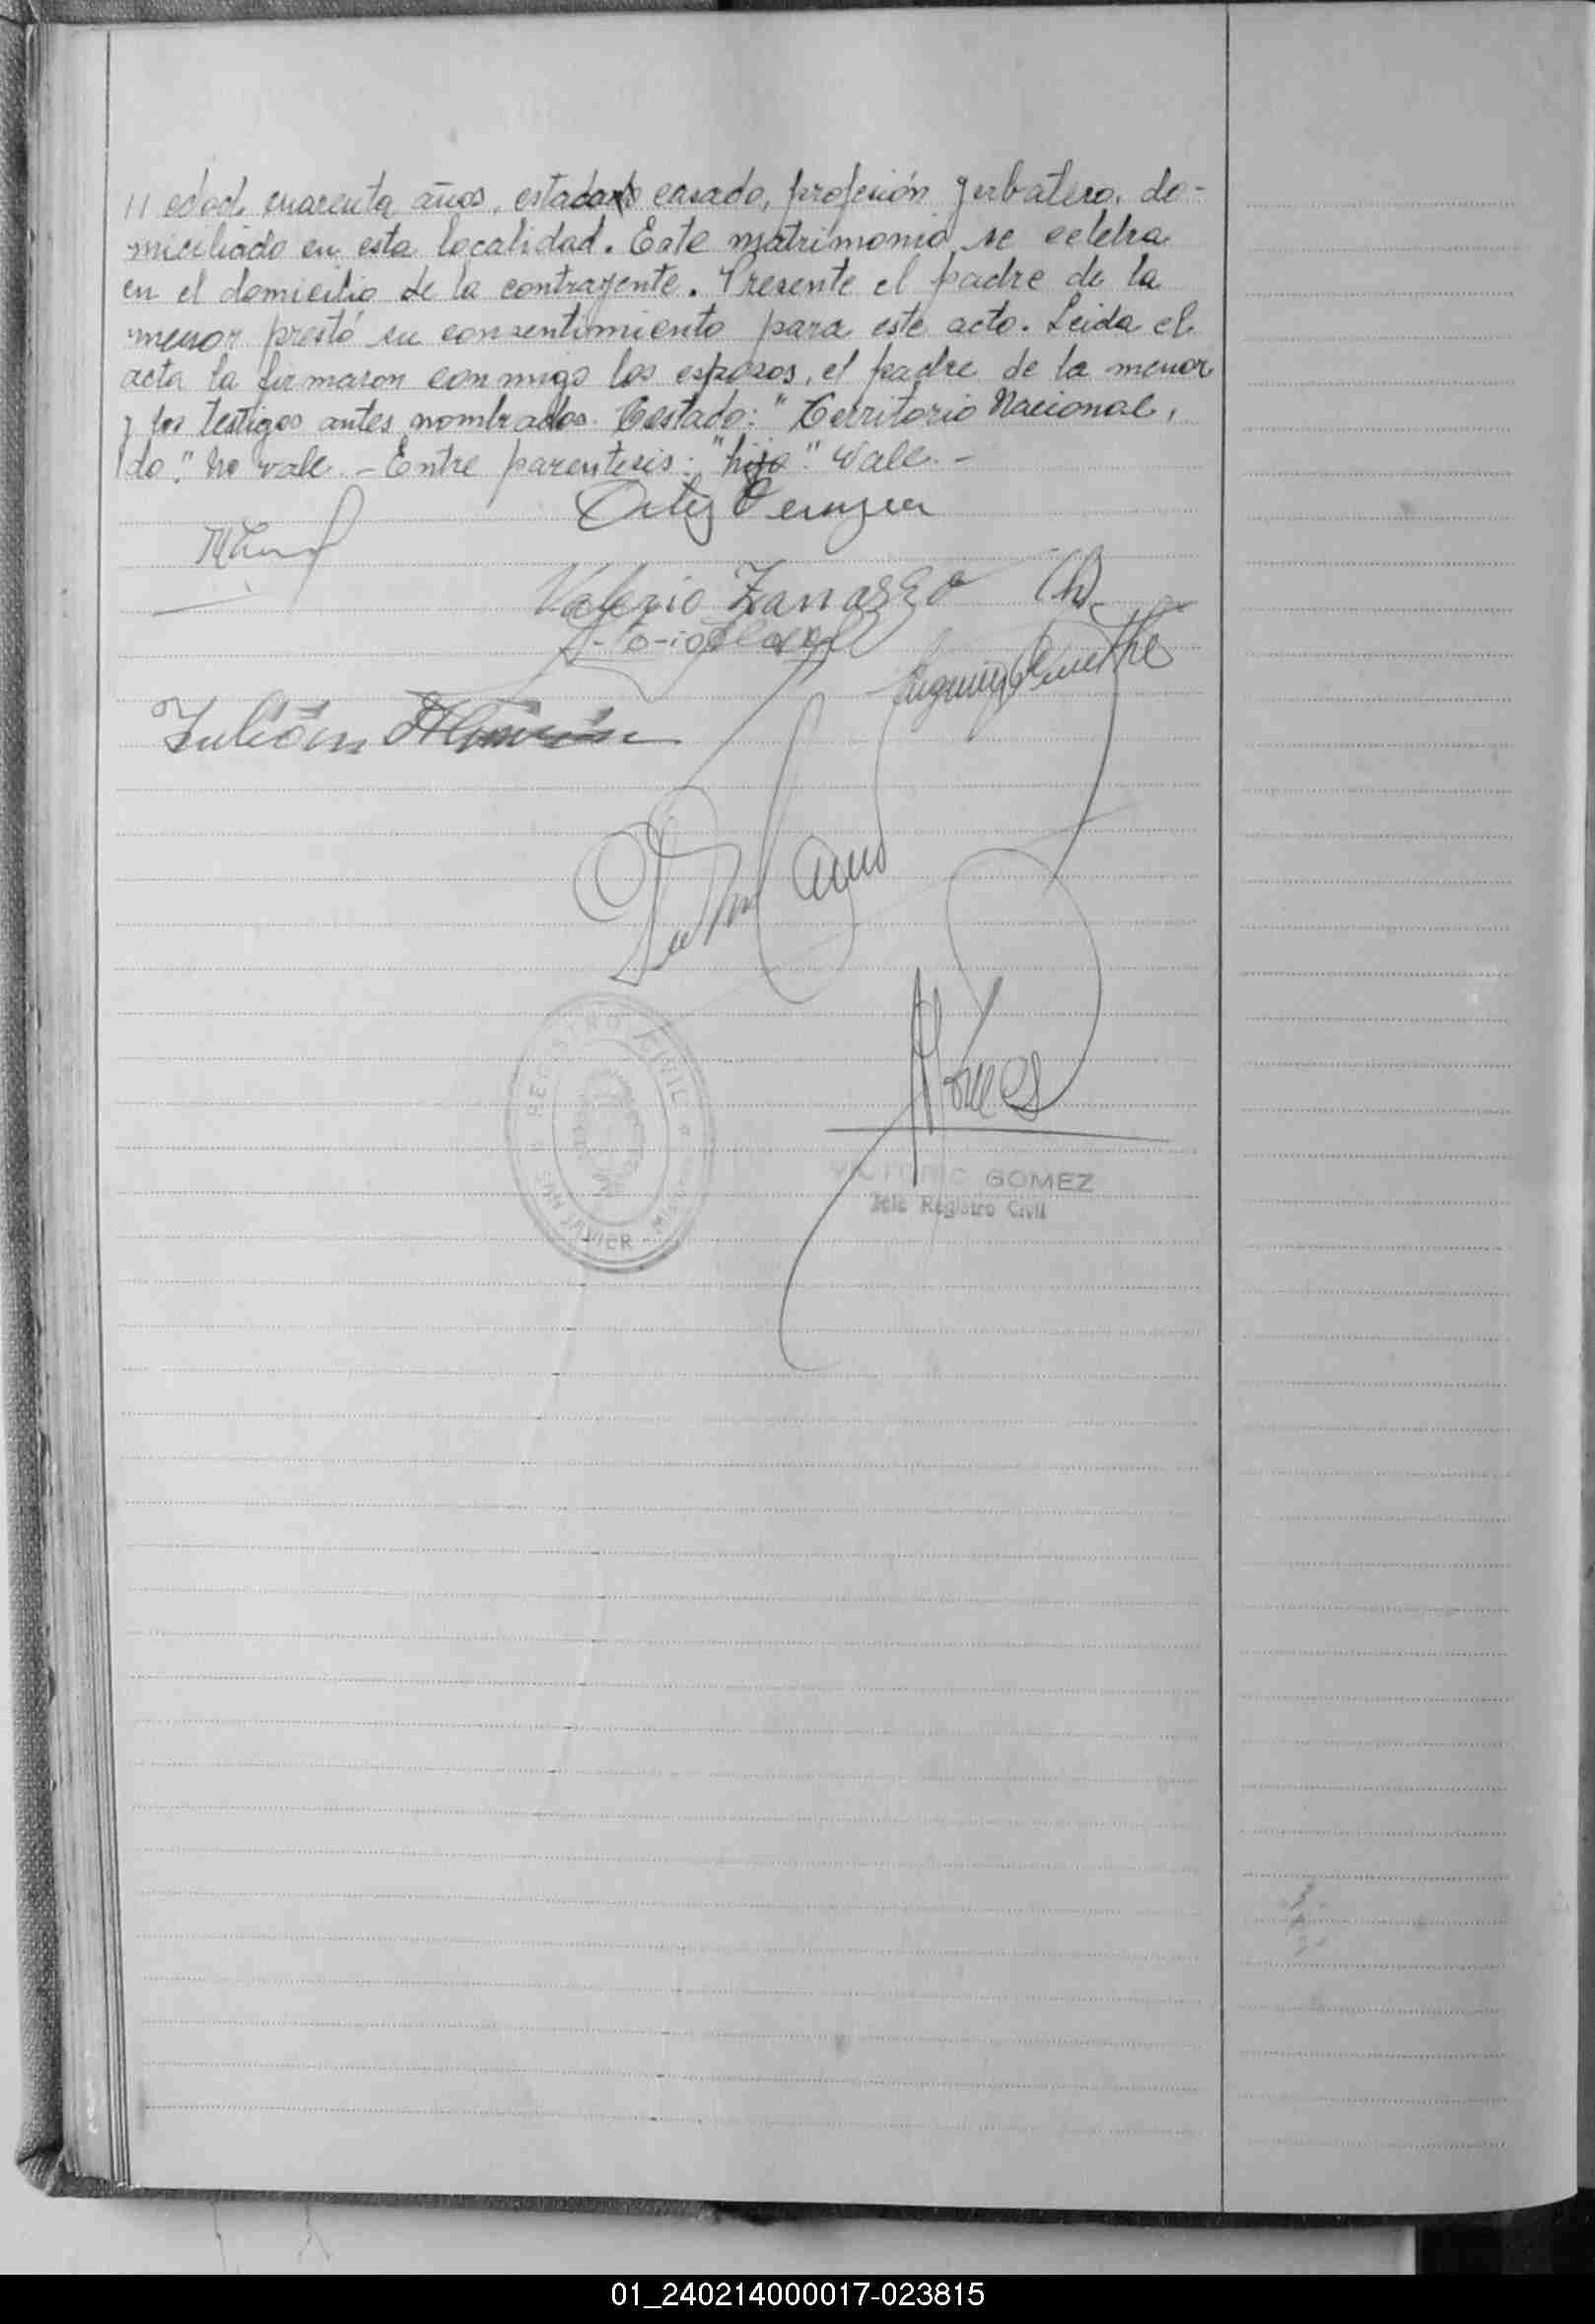 // edad cuarenta años, estado casado, profesión yerbatero, do-
miciliado en esta localidad. Este matrimonio se celebra
en el domicilio de la contrayente. Presente el padre de la
menor prestó su consentimiento para este acto. Leida el
acta la firmaron conmigo los esposos, el padre de la menor
y los testigos antes nombrados. Testado: "Territorio Nacional,
do." No vale - Entre parentesis: "hijo" Vale. -
Ortiz
Valerio Zanazzo
Julián
REGISTRO CIVIL
SAN JAVIER - MISIONES
VICTORIO GOMEZ
Jefe Registro Civil
01_240214000017-023815